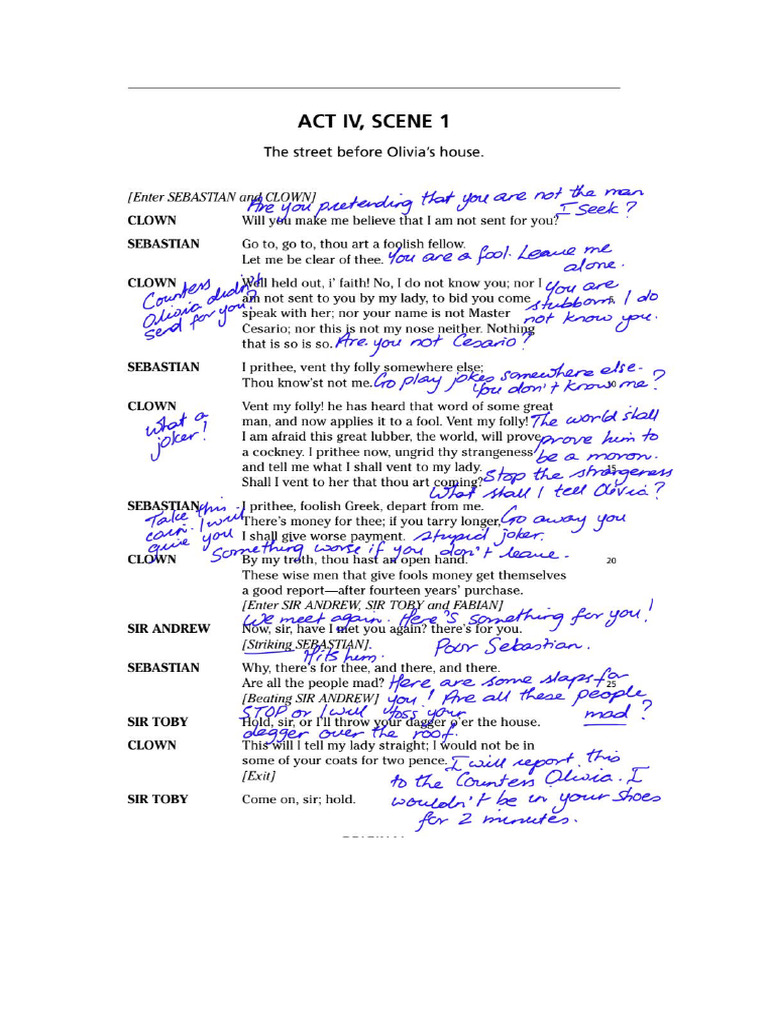 ACT IV, SCENE 1
The street before Olivia's house.
[Enter SEBASTIAN and CLOWN]
Are you pretending that you are not the man
I seek?
CLOWN Will you make me believe that I am not sent for you?
SEBASTIAN Go to, go to, thou art a foolish fellow.
Let me be clear of thee. You are a fool. Leave me
alone.
CLOWN Well held out, i' faith! No, I do not know you; nor I You are
Countess
Olivia didn't
send for you?
am not sent to you by my lady, to bid you come stubborn, I do
speak with her; nor your name is not Master not know you.
Cesario; nor this is not my nose neither. Nothing
that is so is so. Are you not Cesario?
SEBASTIAN I prithee, vent thy folly somewhere else;
Thou know'st not me. Go play jokes somewhere else.
You don't know me?
CLOWN Vent my folly! he has heard that word of some great
what a
joker!
man, and now applies it to a fool. Vent my folly! The world shall
I am afraid this great lubber, the world, will prove prove him to
a cockney. I prithee now, ungrid thy strangeness be a moron.
and tell me what I shall vent to my lady. 15
Shall I vent to her that thou art coming? Stop the strangeness
What shall I tell Olivia?
SEBASTIAN I prithee, foolish Greek, depart from me.
Take this
coin. I will
give you
There's money for thee; if you tarry longer, Go away you
I shall give worse payment. stupid joker.
Something worse if you don't leave.
CLOWN By my troth, thou hast an open hand. 20
These wise men that give fools money get themselves
a good report—after fourteen years' purchase.
[Enter SIR ANDREW, SIR TOBY and FABIAN]
We meet again. Here's something for you!
SIR ANDREW Now, sir, have I met you again? there's for you.
[Striking SEBASTIAN]. Poor Sebastian.
Hits him.
SEBASTIAN Why, there's for thee, and there, and there.
Are all the people mad? Here are some slaps for 25
[Beating SIR ANDREW] you! Are all these people
mad?
STOP or I will toss your
SIR TOBY Hold, sir, or I'll throw your dagger o'er the house.
dagger over the roof.
CLOWN This will I tell my lady straight; I would not be in
some of your coats for two pence. I will report this
[Exit] to the Countess Olivia. I
SIR TOBY Come on, sir; hold. wouldn't be in your shoes
for 2 minutes.